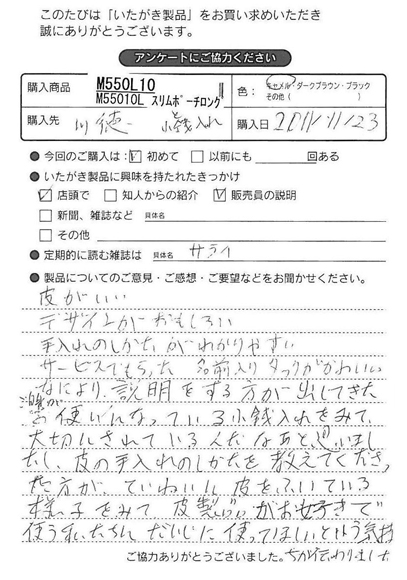 このたびは「いたがき製品」をお買い求めいただき
誠にありがとうございます。
アンケートにご協力ください
購入商品 M550L10
M5501OL スリムポーチロング
色： キャメル・ダークブラウン・ブラック
その他（ ）
購入先 川徳 小銭入れ 購入日 2011/11/23
● 今回のご購入は： ☑ 初めて □ 以前にも 回ある
● いたがき製品に興味を持たれたきっかけ
☑ 店頭で □ 知人からの紹介 ☑ 販売員の説明
□ 新聞、雑誌など 具体名
□ その他
● 定期的に読む雑誌は 具体名 サライ
● 製品についてのご意見・ご感想・ご要望などをお聞かせください。
皮がいい
デザインがおもしろい
手入れのしかたがわかりやすい
サービスでもらった 名前入りタックがかわいい
なにより、説明をする方が出してきた
使いになっている小銭入れをみて、
大切にされているんだなあと思いまし
たし、皮の手入れのしかたを教えてくださっ
た方が、ていねいに皮をふいている
様子をみて 皮製品がお好きで
使う私たちも だいじに 使ってほしいという気持
ちが伝わりました
ご協力ありがとうございました。